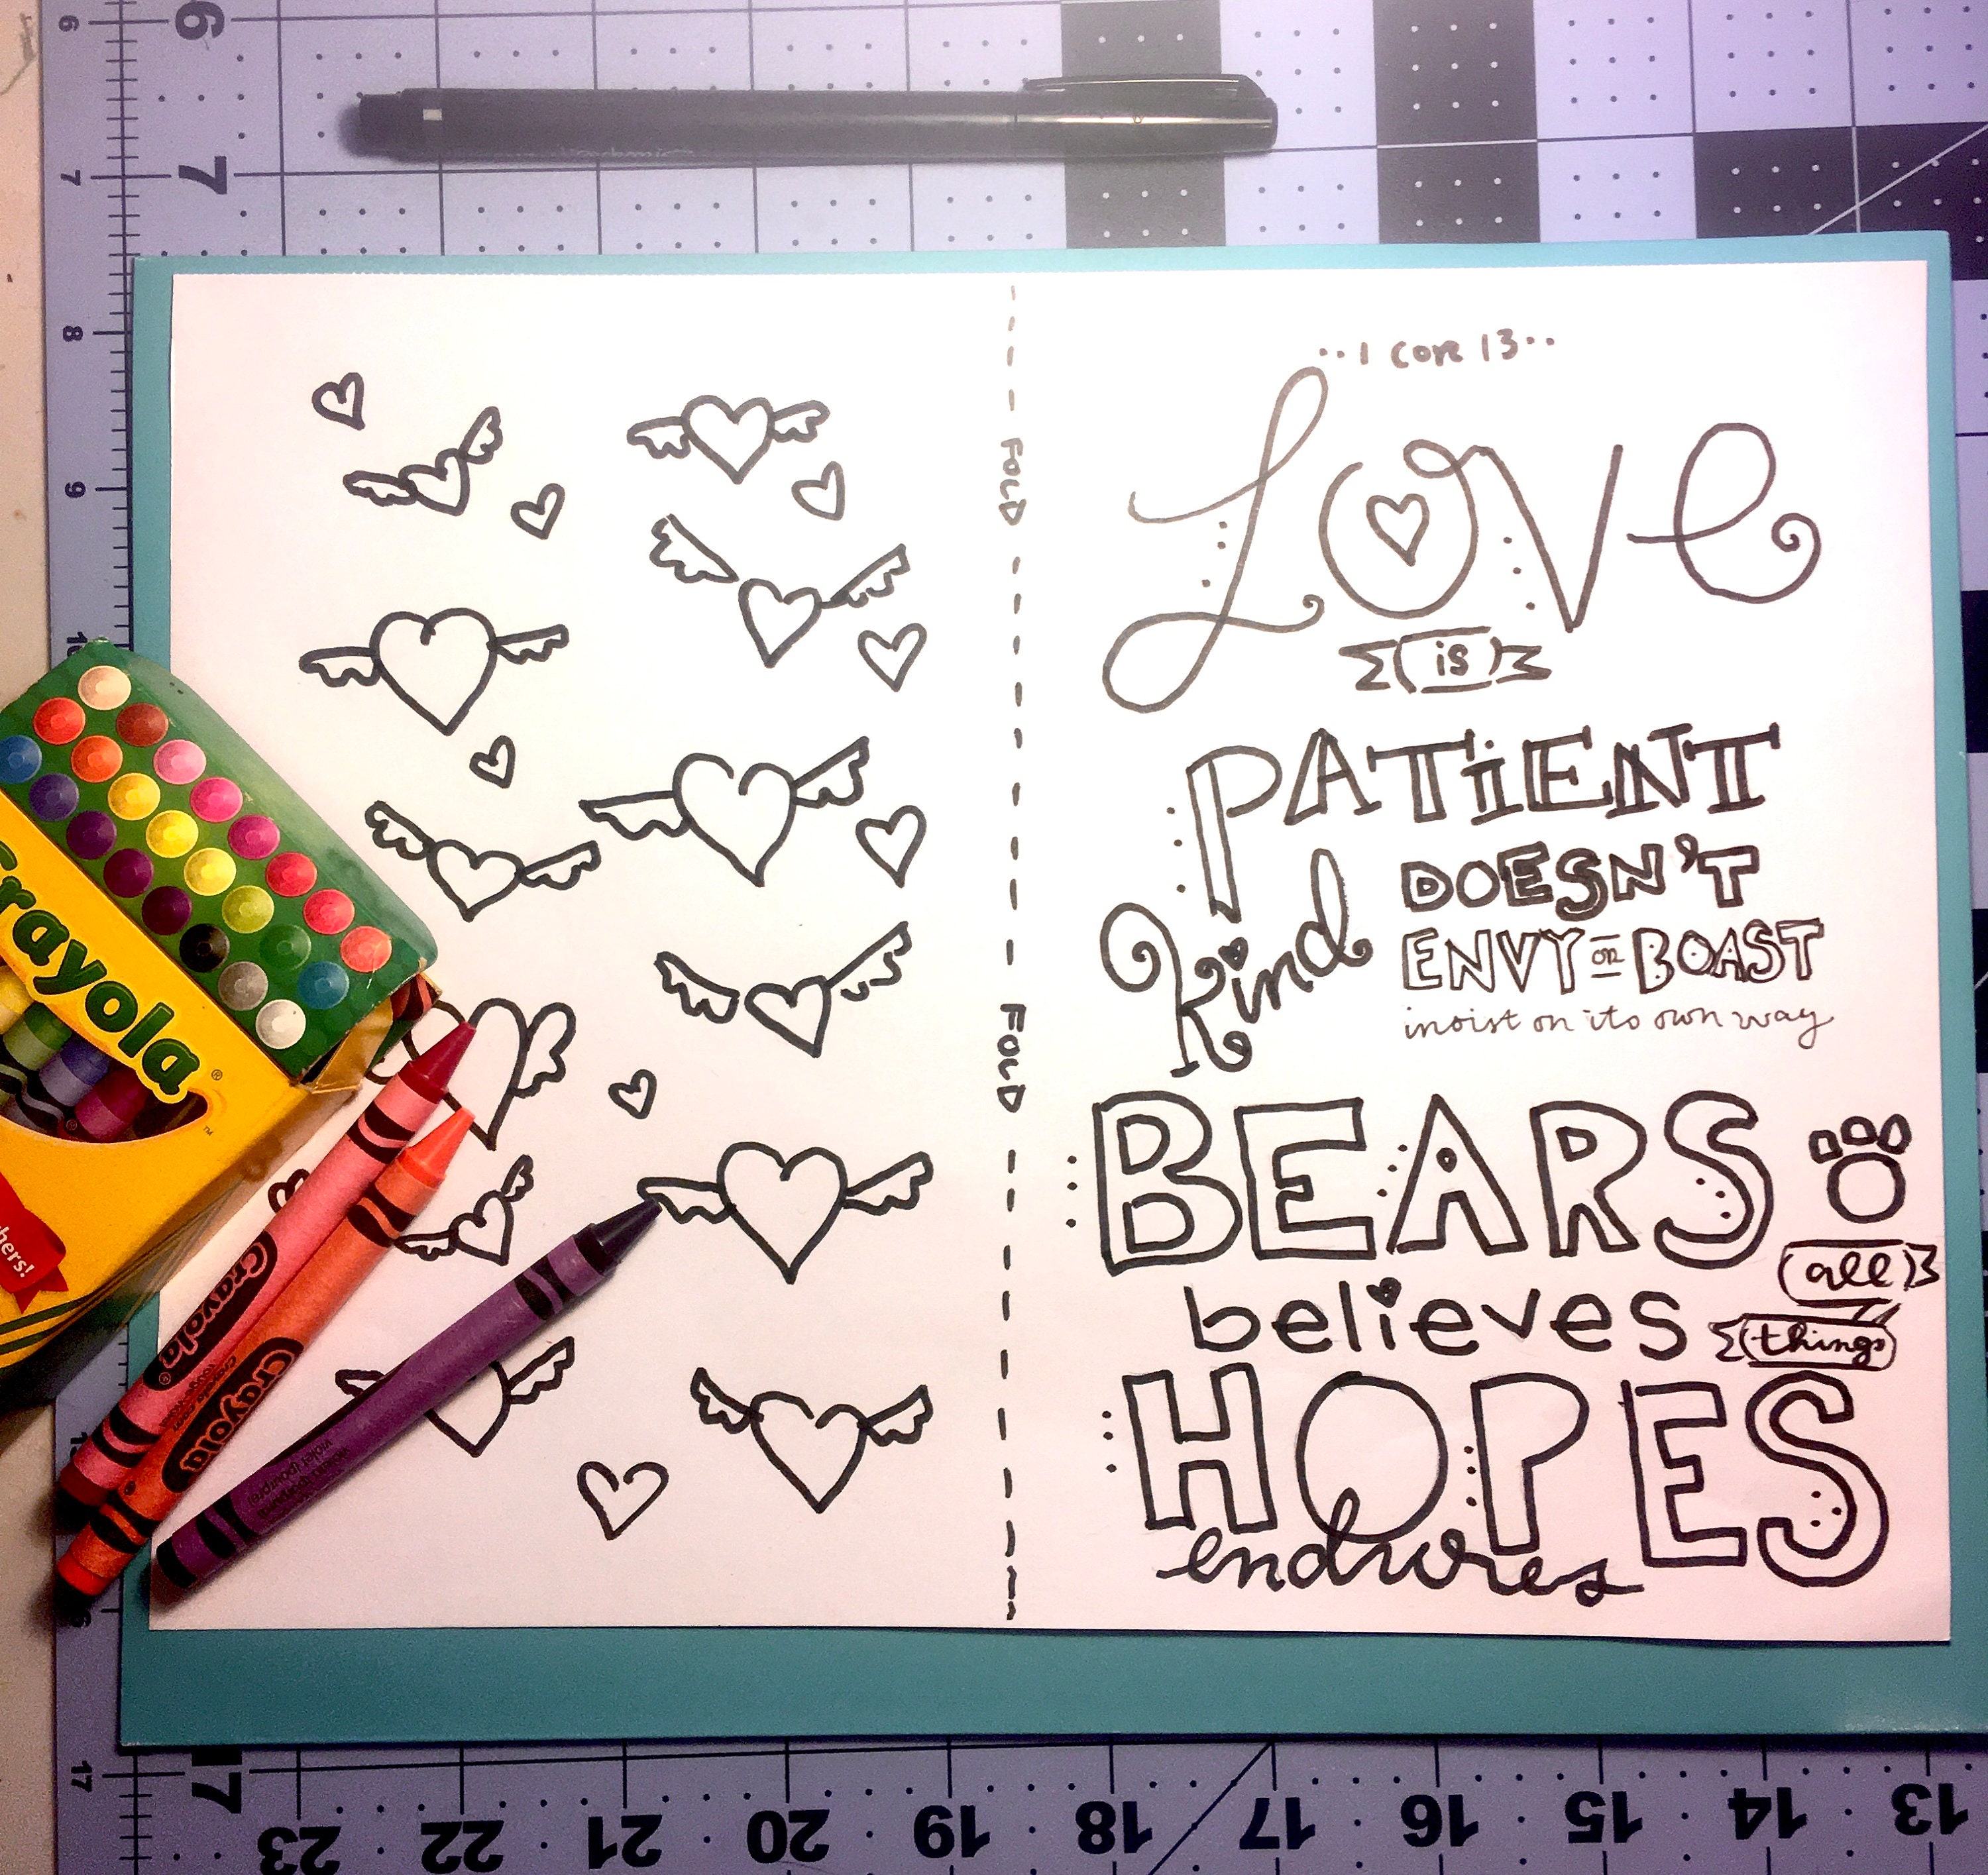 6
6
7
7
8
9
10
FOLD
FOLD
··1 cor 13··
Love
is
PATiENT
kind
DOESN'T
ENVY OR BOAST
insist on its own way
BEARS
all
believes
things
HOPES
endures
Crayola
Crayola
Crayola
17
17
23 22 21 20 19 18 17 16 15 14 13